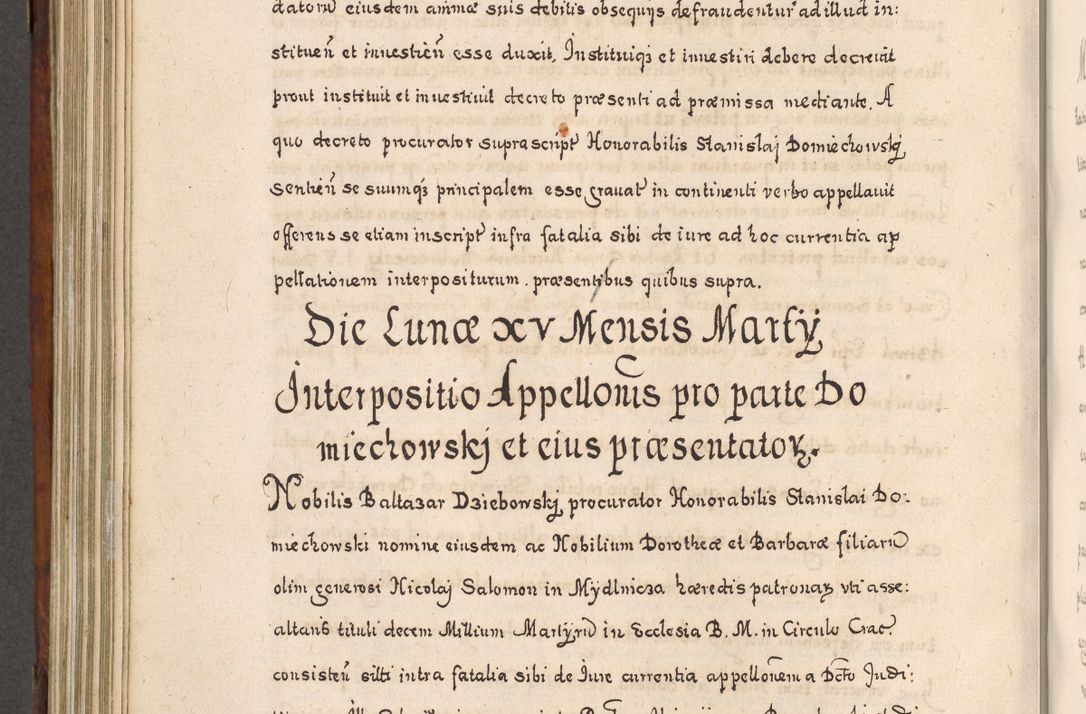 datorū eiusdem animæ suis debitis obsequijs defraudentur ad illud in:
stituen̄ et inuestien̄ esse duxit, Instituiq₃ et inuestiri debere decreuit
prout instituit et inuestiuit decreto præsenti ad præmissa mediante. A
quo decreto procurator suprascript Honorabilis Stanislaj Domiechowskj
sentien̄ se suumq₃ principalem esse grauat in continenti verbo appellauit
offerens se etiam inscript infra fatalia sibi de iure ad hoc currentia ap
pellationem interpositurum. præsentibus quibus supra.
Die Lunæ xv Mensis Martÿ
Interpositio Appellonis pro parte Do
miechowskj et eius præsentatoꝝ.
Nobilis Baltazar Dziebowskj procurator Honorabilis Stanislai Do:
miechowski nomine eiusdem ac Nobilium Dorotheæ et Barbaræ filiarū
olim generosi Nicolaj Salomon in Mÿdlnicza hæredis patronaꝝ vti asse:
altaris tituli decem Millium Martÿrū in Ecclesia B. M. in Circulo Crac.
consisten̄ silti intra fatalia sibi de Iure currentia appellonem a Dcto Judi: